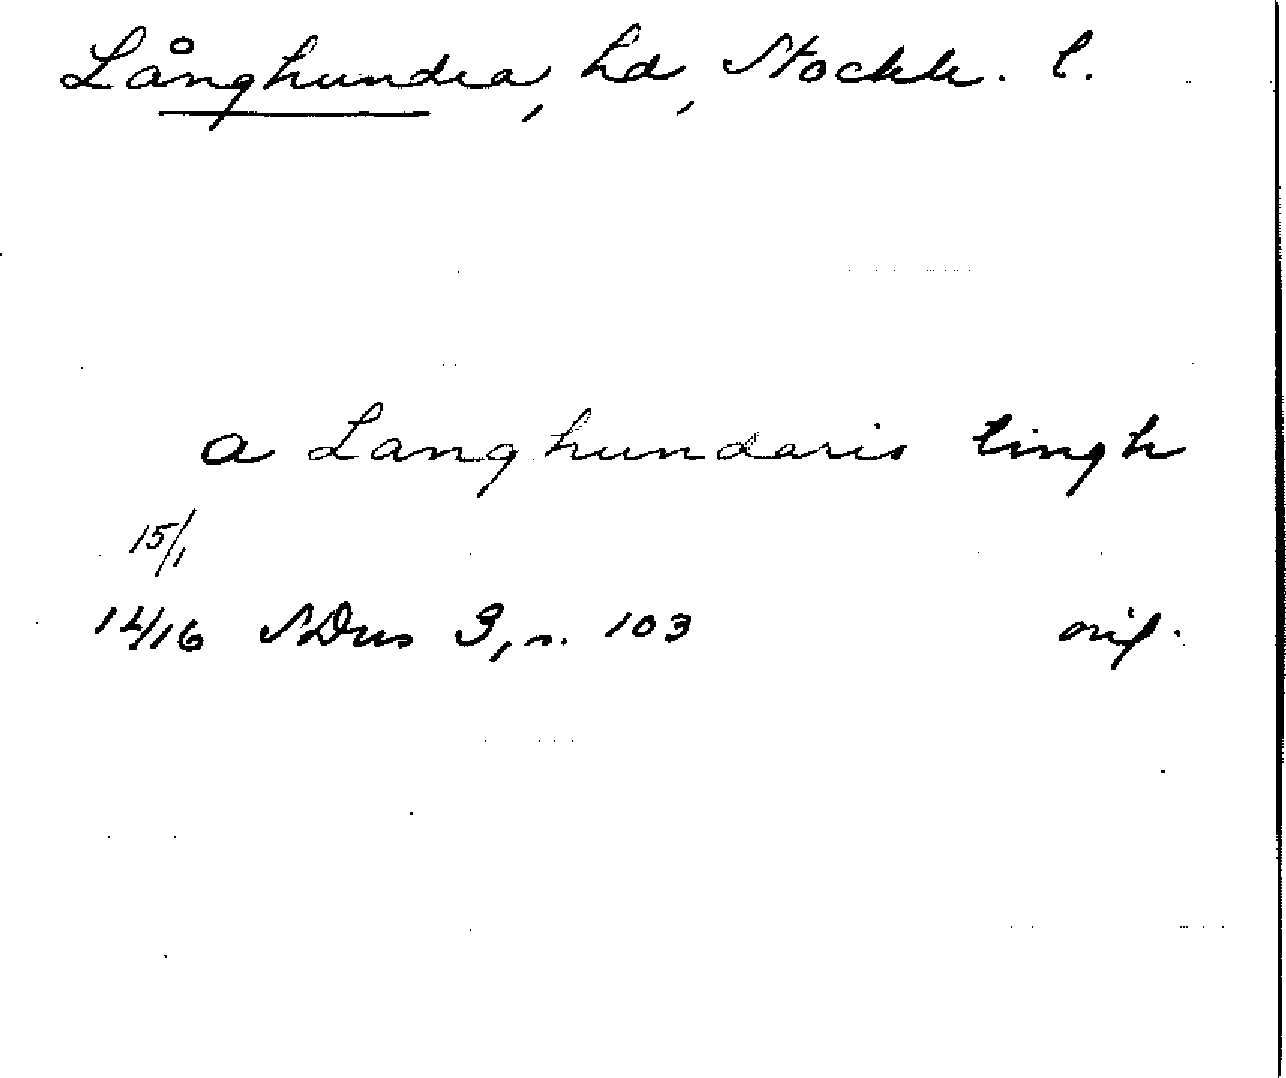 Långhundra, hd, Stockh. l.
a Langhundaris tingh
15/1
1416 SDns 3, s. 103 orig.